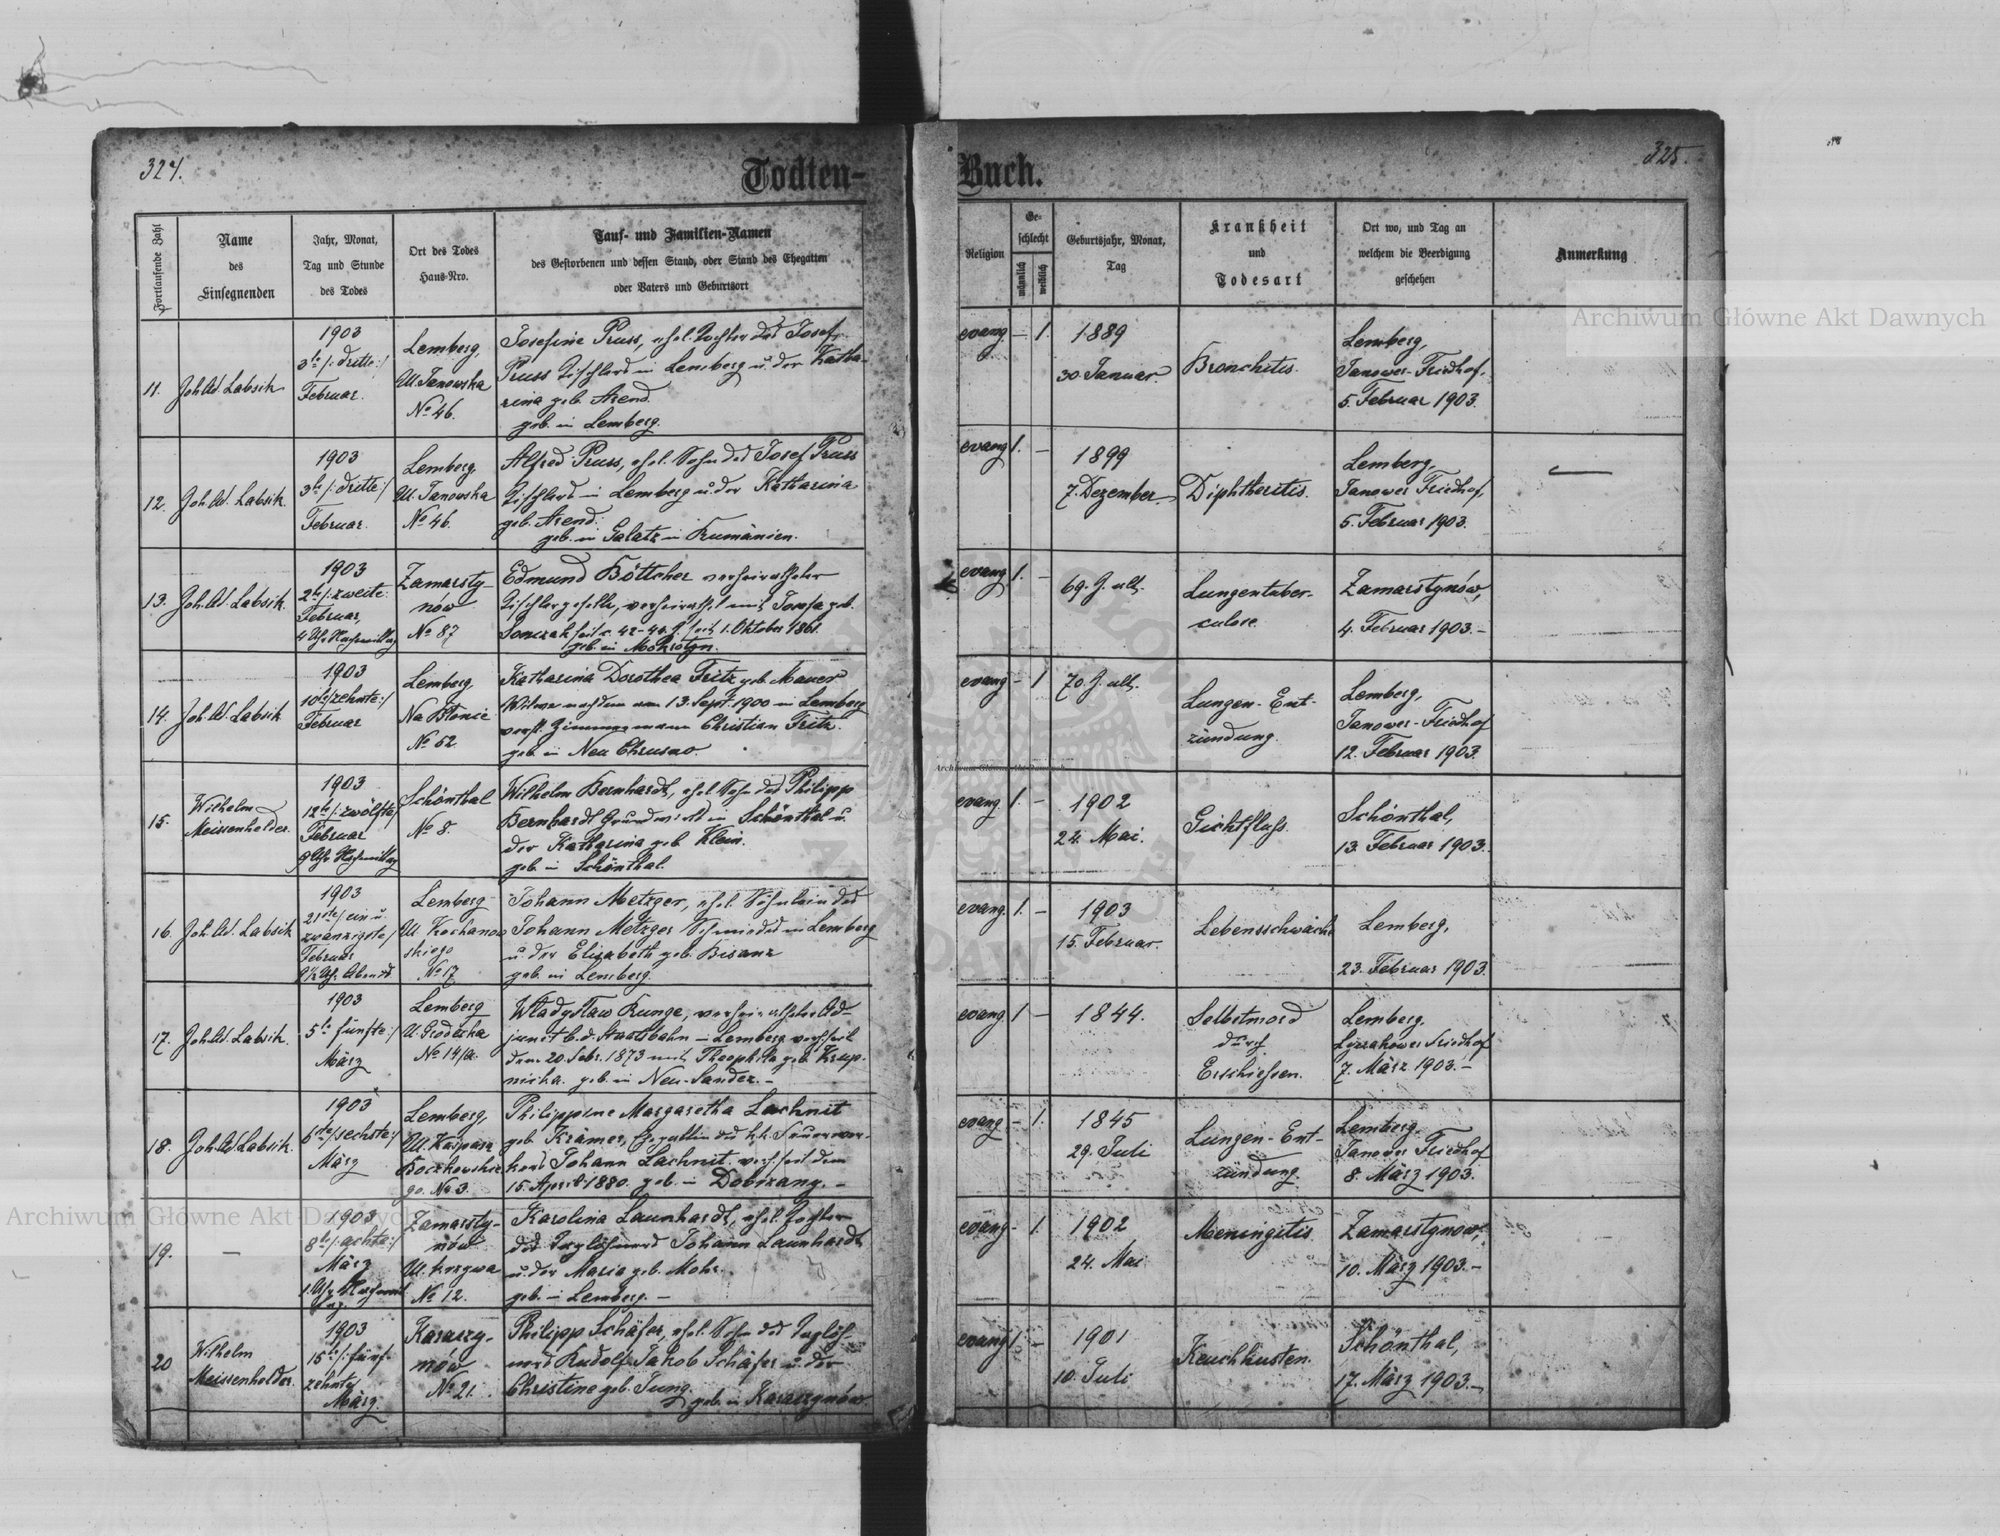 324.
Todten-
Fortlaufende Zahl
Name
des
Einsegnenden
Jahr, Monat,
Tag und Stunde
des Todes
Ort des Todes
Haus-Nro.
Tauf- und Familien-Namen
des Gestorbenen und dessen Stand, oder Stand des Ehegatten
oder Vaters und Geburtsort
11.
Joh. Ad. Labsik
1903
3te /: dritte :/
Februar.
Lemberg,
Ul. Janowska
No 46.
Josefine Pruss, ehel. Tochter des Josef
Pruss Tischlers in Lemberg u. der Katha-
rina geb. Arend.
geb. in Lemberg.
12.
Joh. Ad. Labsik.
1903
3te /: dritte :/
Februar.
Lemberg,
Ul. Janowska
No 46.
Alfred Pruss, ehel. Sohn des Josef Pruss
Tischlers in Lemberg u. der Katharina
geb. Arend.
geb. in Galatz in Rumänien.
13.
Joh. Ad. Labsik.
1903
2te /: zweite
Februar,
4 Uhr Nachmittag
Zamarsty-
nów
No 87
Edmund Böttcher verheiratheter
Tischlergeselle, verheirathet mit Josefa geb.
seit 1. Oktober 1861.
geb. in
14.
Joh. Ad. Labsik
1903
10te /: zehnte :/
Februar
Lemberg,
Na Błonie
No 52
Katharina Dorothea Fritz geb. Mauer
Witwe nach dem am 13. Sept. 1900 in Lemberg
verst. Zimmermann Christian Fritz.
geb. in Neu Chrusno.
15.
Wilhelm
Meissenhelder.
1903
12te /: zwölfte /
Februar
9 Uhr Nachmittag
Schönthal
No 8.
Wilhelm Bernhardt, ehel. Sohn des Philipp
Bernhardt Grundwirth in Schönthal u.
der Katharina geb. Klein.
geb. in Schönthal.
16.
Joh. Ad. Labsik
1903
21ste / ein u.
zwanzigste /
Februar
9 1/2 Uhr Abends
Lemberg
Ul. Kochanow
skiego
No 17
Johann Metzger, ehel. Söhnlein des
Johann Metzger Schmiedes in Lemberg
u. der Elisabeth geb. Bisanz
geb. in Lemberg.
17.
Joh. Ad. Labsik.
1903
5te fünfte :/
März
Lemberg
Ul. Grodecka
No 14/a.
Władysław Runge, verheiratheter Ad-
junct b. d. Staatsbahn in Lemberg verh. seit
dem 20. Febr. 1873 mit Theophila geb. Krup-
nicka. geb. in Neu-Sandez. -
18.
Joh. Ad. Labsik.
1903
6ste / sechste :/
März
Lemberg,
Ul. Kaspara
Boczkowskie
go. No 3.
Philippine Margaretha Lachnit
geb. Krämer, Ehegattin des k. k. Feuerwer-
kers Johann Lachnit. verh. seit dem
15. April 1880. geb. in Dobrzany. -
19.
-
1903
8te /: achte :/
März
1. Uhr Nachmit
tag.
Zamarsty-
nów
Ul. Krzywa
No 12.
Karolina Launhardt, ehel. Tochter
des Taglöhners Johann Launhardt
u. der Maria geb. Mohr.
geb. in Lemberg. -
20
Wilhelm
Meissenhelder.
1903
15te /: fünf-
zehnte
März.
Karaczy-
nów
No 21.
Philipp Schäfer, ehel. Sohn des Taglöh-
ners Rudolf Jakob Schäfer u. der
Christine geb. Jung.
geb. in Karaczynów.
Buch.
325.
Religion
Ge-
schlecht
männlich
weiblich
Geburtsjahr, Monat,
Tag
Krankheit
und
Todesart
Ort wo, und Tag an
welchem die Beerdigung
geschehen
Anmerkung
evang. - 1.
1889
30. Januar.
Bronchitis.
Lemberg,
Janower-Friedhof,
5. Februar 1903.
evang 1. -
1899
7. Dezember
Diphtheritis.
Lemberg,
Janower Friedhof,
5. Februar 1903.
evang 1. -
69. J. alt.
Lungentuber-
culose.
Zamarstynów,
4. Februar 1903. -
evang - 1
70. J. alt.
Lungen-Ent-
zündung.
Lemberg,
Janower-Friedhof
12. Februar 1903.
evang 1. -
1902
24. Mai.
Gichtfluss.
Schönthal,
13. Februar 1903.
evang. 1. -
1903
15. Februar.
Lebensschwäche
Lemberg,
23. Februar 1903.
evang 1 -
1844.
Selbstmord
durch
Erschiessen.
Lemberg.
Lyczakower Friedhof
7. März 1903. -
evang - 1.
1845
29. Juli
Lungen-Ent-
zündung.
Lemberg.
Janower Friedhof
8. März 1903.
evang - 1.
1902
24. Mai
Meningitis
Zamarstynów,
10. März 1903. -
evang 1. -
1901
10. Juli
Keuchhusten.
Schönthal,
17. März 1903. -
Archiwum Główne Akt Dawnych
Archiwum Główne Akt Dawnych
Archiwum Główne Akt Dawnych